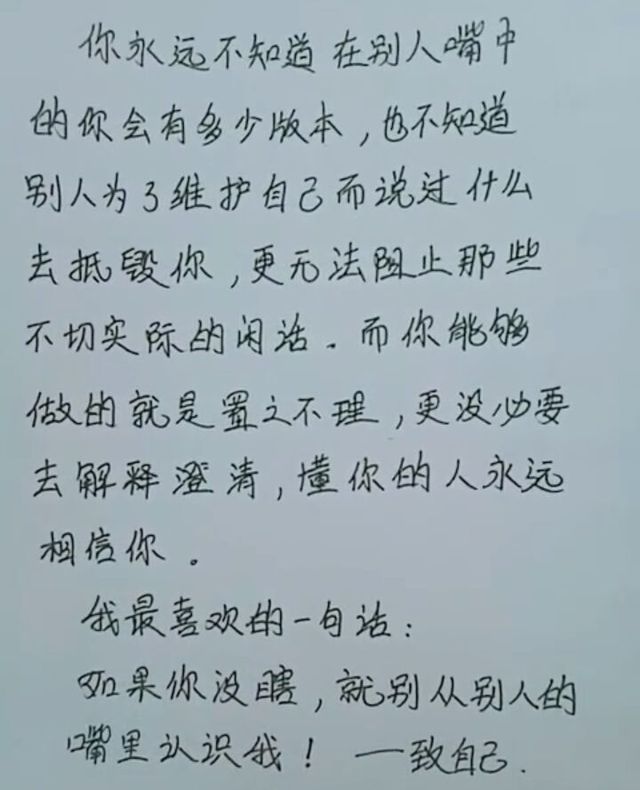 你永远不知道在别人嘴中
的你会有多少版本，也不知道
别人为了维护自己而说过什么
去抵毁你，更无法阻止那些
不切实际的闲话．而你能够
做的就是置之不理，更没必要
去解释澄清，懂你的人永远
相信你．
我最喜欢的一句话：
如果你没瞎，就别从别人的
嘴里认识我！ 一致自己．